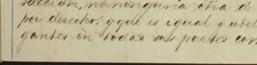 succion, no ninguna otra de
por derecho, y que es igual y util
gantes in todas sus partes con